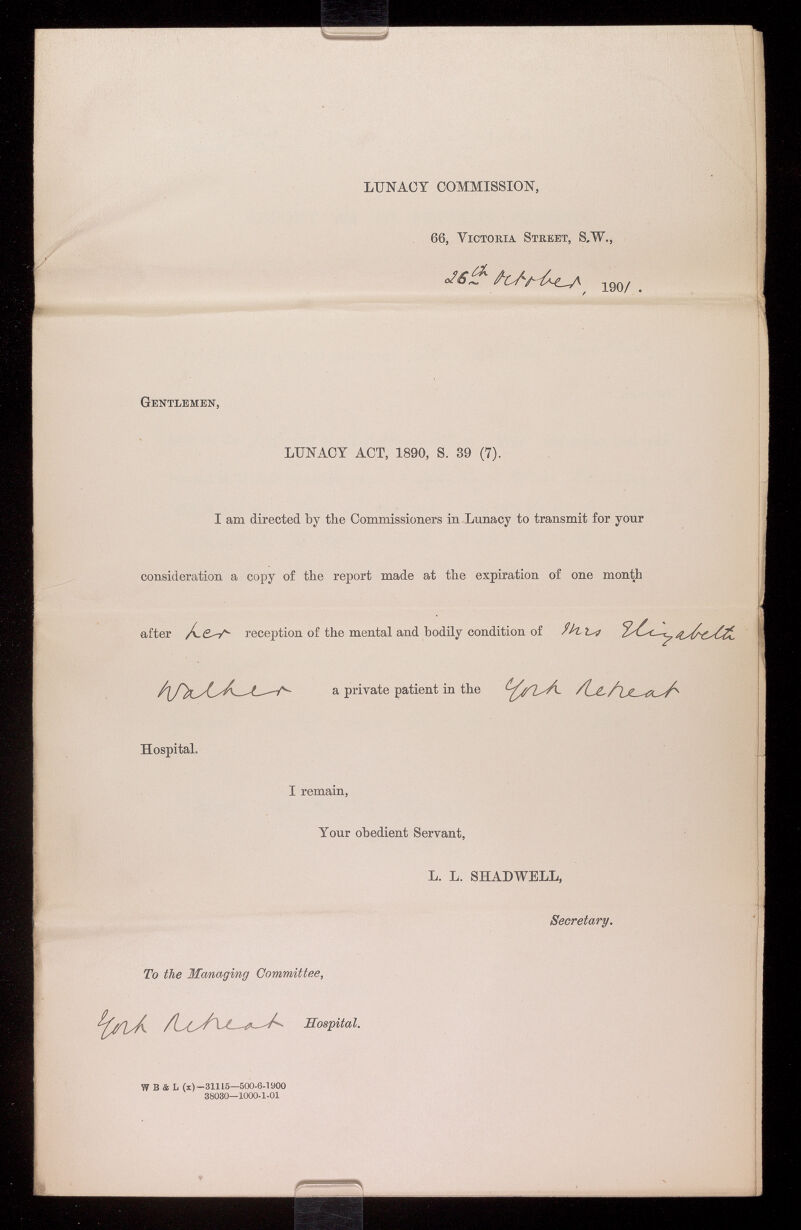 LUNACY COMMISSION,
66, VICTORIA STREET, S.W.,
26th October, 1901.
GENTLEMEN,
LUNACY ACT, 1890, S. 39 (7).
I am directed by the Commissioners in Lunacy to transmit for your
consideration a copy of the report made at the expiration of one month
after her reception of the mental and bodily condition of Mrs Elizabeth
Walker a private patient in the York Retreat
Hospital.
I remain,
Your obedient Servant,
L. L. SHADWELL,
Secretary.
To the Managing Committee,
York Retreat Hospital.
W B & L (x)—31115—500-6-1900
38030—1000-1-01